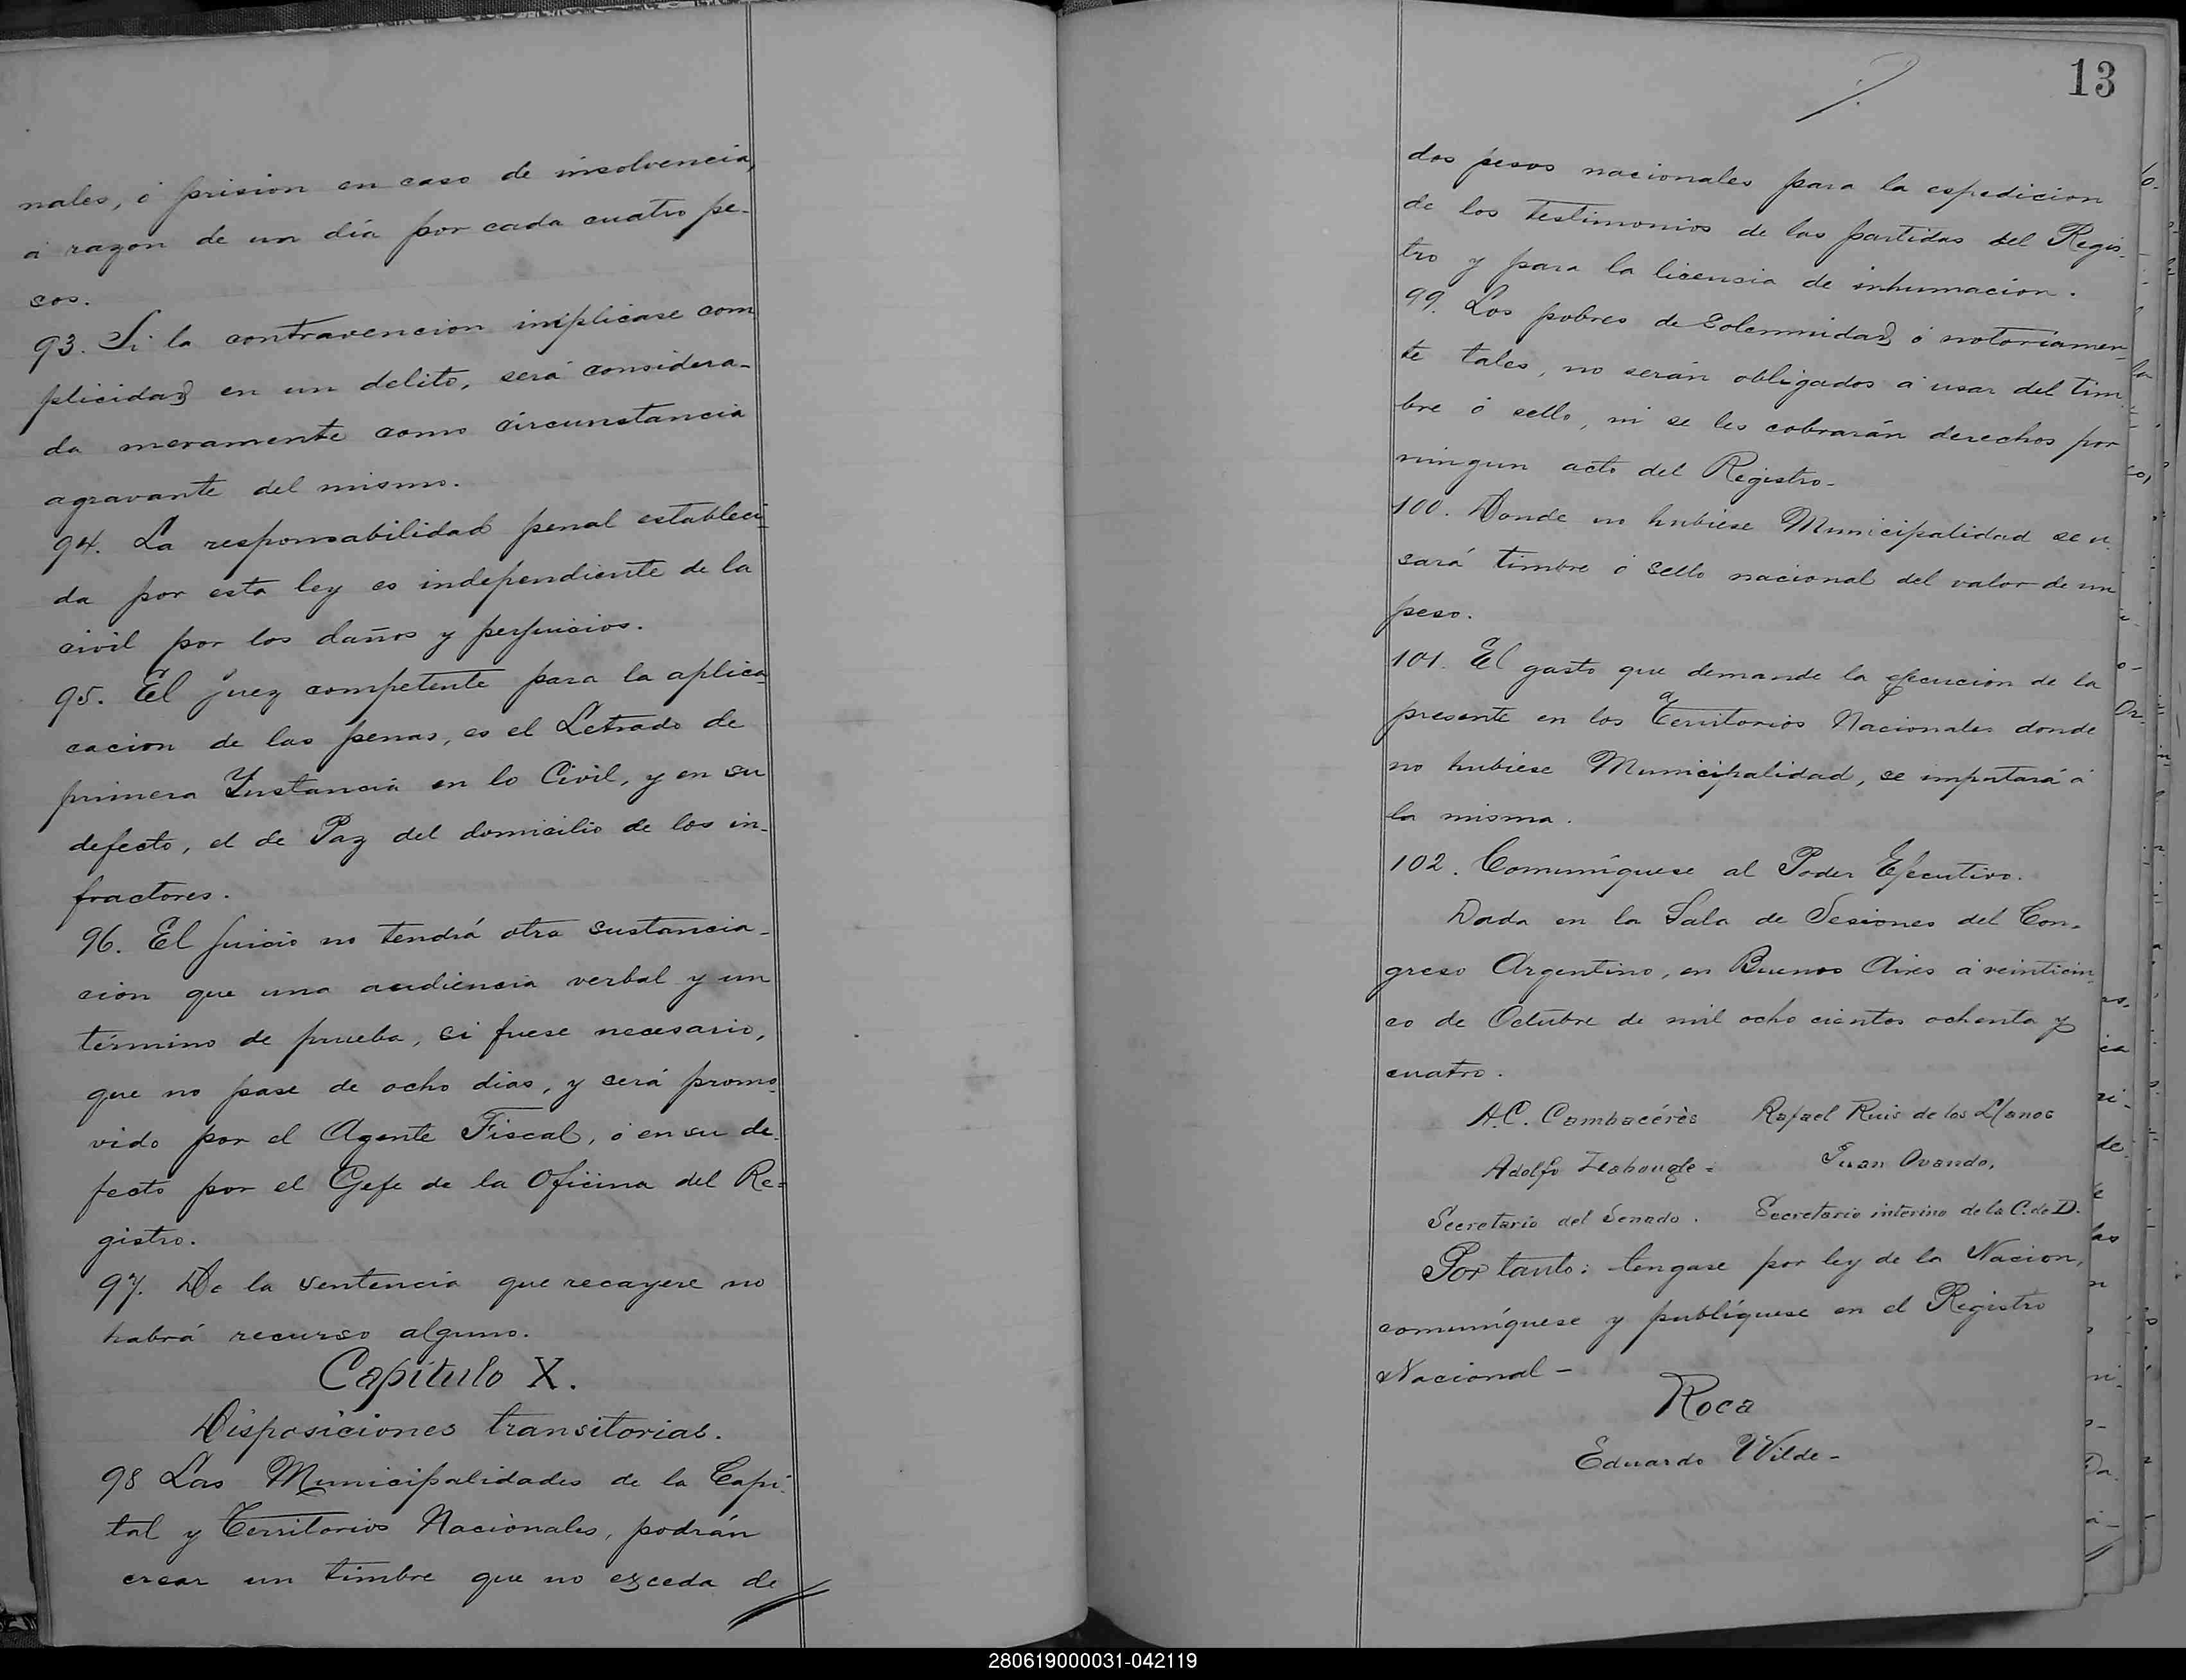 nales, ó prision en caso de insolvencia,
á razon de un día por cada cuatro pe-
sos.
93. Si la contravencion implicase com
plicidad en un delito, será considera-
da meramente como circunstancia
agravante del mismo.
94. La responsabilidad penal estableci-
da por esta ley es independiente de la
civil por los daños y perjuicios.
95. El juez competente para la aplica-
cacion de las penas, es el Letrado de
primera Instancia en lo Civil, y en su
defecto, el de Paz del domicilio de los in-
fractores.
96. El juicio no tendrá otra sustancia-
cion que una audiencia verbal y un
término de prueba, si fuese necesario,
que no pase de ocho dias, y será promo-
vido por el Agente Fiscal, ó en su de-
fecto por el Gefe de la Oficina del Re=
gistro.
97. De la sentencia que recayere no
habrá recurso alguno.
Capítulo X.
Disposiciones transitorias.
98 Las Municipalidades de la Capi-
tal y Territorios Nacionales, podrán
crear un timbre que no exceda de
13
dos pesos nacionales para la espedicion
de los testimonios de las partidas del Regis-
tro y para la licencia de inhumacion.
99. Los pobres de solemnidad ó notoriamen-
te tales, no serán obligados á usar del tim-
bre ó sello, ni se les cobrarán derechos por
ningun acto del Registro-
100. Donde no hubiese Municipalidad se u-
sará timbre ó sello nacional del valor de un
peso.
101. El gasto que demande la ejecucion de la
presente en los Territorios Nacionales donde
no hubiese Municipalidad, se imputará á
la misma.
102. Comuníquese al Poder Ejecutivo.
Dada en la Sala de Sesiones del Con-
greso Argentino, en Buenos Aires á veinticin-
co de Octubre de mil ocho cientos ochenta y
cuatro.
A.C. Cambacérès Rafael Ruis de los Llanos
Adolfo Labougle= Juan Ovando,
Secretario del Senado. Secretario interino de la C. de D.
Por tanto: tengase por ley de la Nacion,
comuníquese y publíquese en el Registro
Nacional-
Roca
Eduardo Wilde-
280619000031-042119